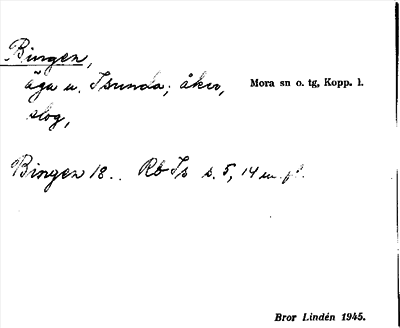 Bingen,
äga u. Isunda; åker, Mora sn o. tg, Kopp. l.
slog,
Bingen 18.. Rb Is s. 5, 14 m. fl.
Bror Lindén 1945.